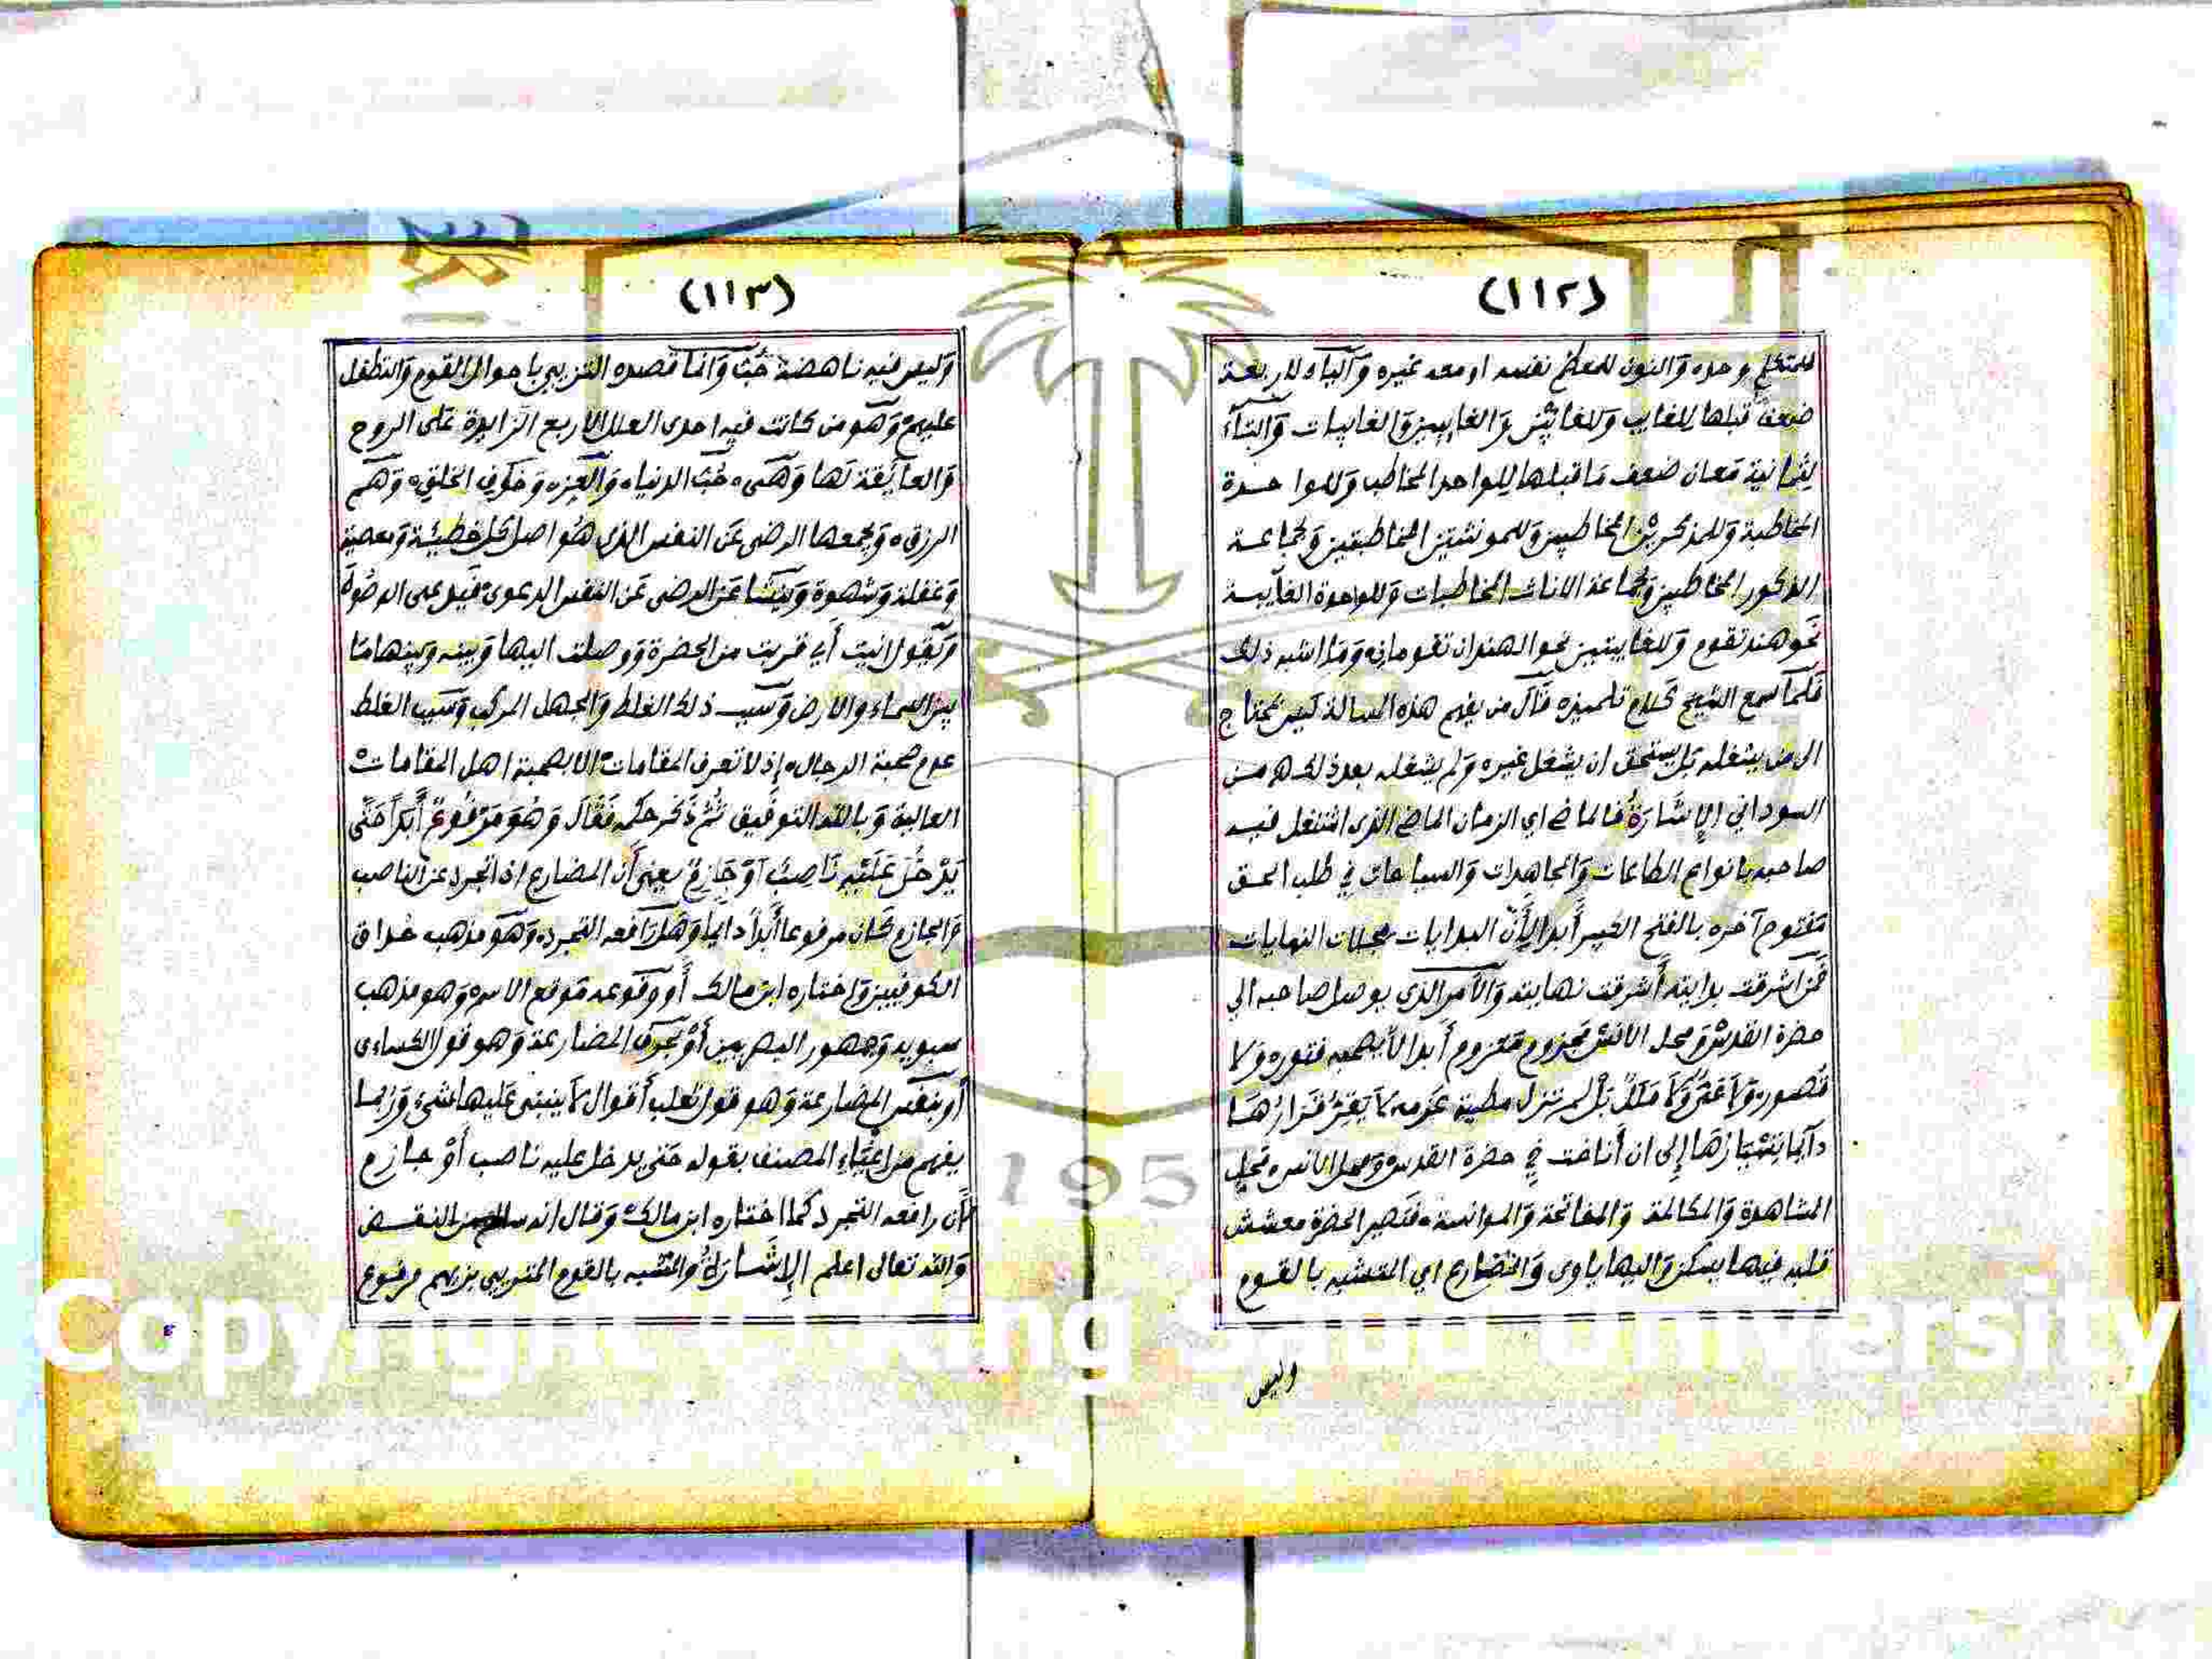 (١١٢)
للمتكلم وحده والنون للمعظم نفسه او معه غيره والياء لاربعة
ضعفا قبلها للغايب وللغايبين والغايبين والغايبات والتاء
لثمانية معان ضعف ما قبلها للواحد المخاطب وللواحدة
المخاطبة وللمذكرين المخاطبين وللمونثتين المخاطبتين ولجماعة
الذكور المخاطبين ولجماعة الاناث المخاطبات وللواحدة الغآيبة
نحو هند تقوم وللغايبتين نحو الهندان تقومان وما اشبه ذلك
فلما سمع الشيخ كلام تلميذه قال من يفهم هذه المسالة ليس يحتاج
الى من يشغله بل يستحق ان يشغل غيره ولم يشغله بعد ذلك من
السوداني الإشارة فالماضي اي الزمان الماضي الذي اشتغل فيه
صاحبه بانواع الطاعات والمجاهدات والسياحات في طلب الحق
مفتوح آخره بالفتح الكبير أبدا لأن البدايات مجلات النهايات
فمن اشرقت بدايته أشرقت نهايته والأمر الذي يوصل صاحبه الي
حضرة القدس ومحل الانس مجزوم معزوم أبدا لا يصحبه فتور ولا
قصور ولا عقر ولا ملل بل لم تزل مطية عزمه لا يقر قرارها
دآيما تسيارها إلى ان أناخت في حضرة القدس ومحل الانس محل
المشاهدة والمكالمة والمفاتحة والموانسة فتصير الحضرة معشش
قلبه فيها يسكن واليها ياوى والمضارع اي المتشبه بالقوم
وليس
(١١٣)
وليس فيه ناهضة حب وانما قصده التزيي باحوال القوم والتطفل
عليهم وهو من كانت فيه احدى العلل الاربع الزايدة على الروح
والعايقة لها وهى حب الدنيا والعز وخوف الخلق وهم
الرزق ويجمعها الرضى عن النفس الذي هو اصل كل خطيئة ومعصية
وغفلة وشهوة وينشا عن الرضى عن النفس الدعوى قبل الوصول
ويقول انيت أي قربت من الحضرة ووصلت اليها وبينه وبينها ما
بين السماء والارض وسبب ذلك الغلط والجهل المركب وسبب الغلط
عدم صحبة الرجال إذ لا تعرف المقامات الا بصحبة اهل المقامات
العالية وبالله التوفيق ثم ذكر حكمه فقال وهو مرفوع أبدا حتى
يدخل عليه ناصب أو جازم يعنى أن المضارع اذا تجرد عن الناصب
والجازم كان مرفوعا أبدا دايما وهل رافعه التجرد وهو مذهب حذاق
الكوفيين واختاره ابن مالك أو وقوعه موقع الاسم وهو مذهب
سيبويه وجمهور البصريين أو بحرف المضارعة وهو قول الكساءى
أو بنفس المضارعة وهو قول ثعلب أقوال لا ينبنى عليها شئ وربما
يفهم من إغياء المصنف بقوله حتى يدخل عليه ناصب أو جازم
أن رافعه التجرد كما اختاره ابن مالك وقال انه سالم من النقض
والله تعالى اعلم الإشارة والتشبه بالقوم المتزيي بزيهم مرفوع